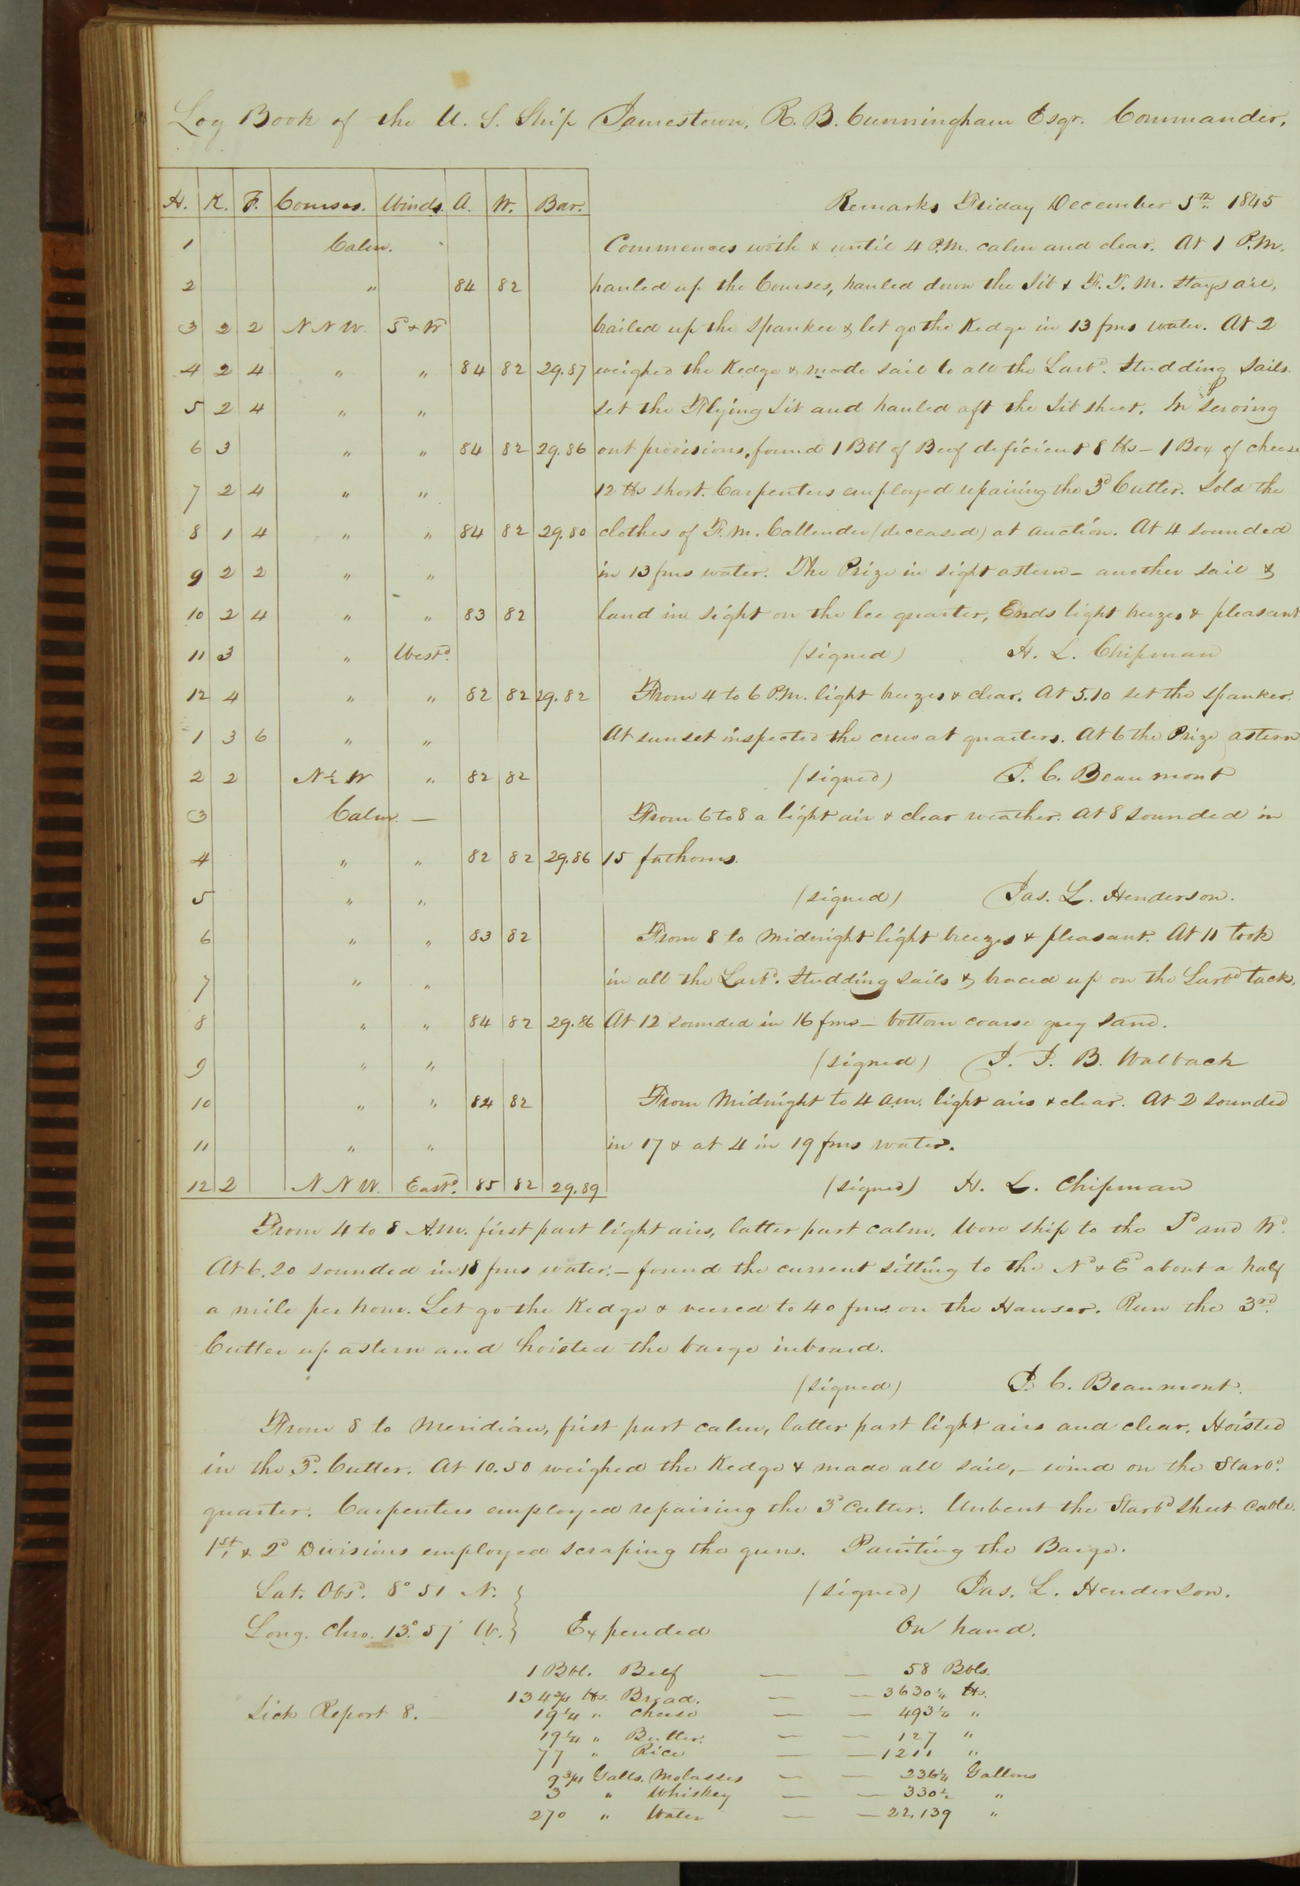 Log Book of the U. S. Ship Jamestown, R. B. Cunningham Esqr. Commander,
H. K. F. Courses. Winds. A. W. Bar. Remarks Friday December 5th 1845
1 Calm. Commences with & until 4 P.M. calm and clear. At 1 P.M.
2 " 84 82 hauled up the Courses, hauled down the Jib & F. T. M. Staysail,
3 2 2 N N W. S & W brailed up the Spanker & let go the Kedge in 13 fms water. At 2
4 2 4 " " 84 82 29.87 weighed the Kedge & made sail to all the Larbd. Studding Sails.
5 2 4 " " set the Flying Jib and hauled aft the Jib sheet. In serving
6 3 " " 84 82 29.86 out provisions, found 1 Bbl of Beef deficient 8 lbs – 1 Box of cheese
7 2 4 " " 12 lbs short. Carpenters employed repairing the 3d Cutter. Sold the
8 1 4 " " 84 82 29.80 clothes of F. M. Callender (deceased) at auction. At 4 sounded
9 2 2 " " in 13 fms water. The Prize in sight astern – another sail &
10 2 4 " " 83 82 land in sight on the lee quarter, Ends light breezes & pleasant
11 3 " Westd. (signed) H. L. Chipman
12 4 " " 82 82 29.82 From 4 to 6 P.M. light breezes & clear. At 5.10 set the Spanker.
1 3 6 " " At sunset inspected the crew at quarters. At 6 the Prize astern
2 2 N & W " 82 82 (signed) J. C. Beaumont
3 Calm. — From 6 to 8 a light air & clear weather. At 8 sounded in
4 " " 82 82 29.86 15 fathoms.
5 " " (signed) Jas. L. Henderson.
6 " " 83 82 From 8 to Midnight light breezes & pleasant. At 11 took
7 " " in all the Larbd. Studding Sails & braced up on the Larbd tack.
8 " " 84 82 29.86 At 12 sounded in 16 fms – bottom coarse grey sand.
9 " " (signed) J. J. B. Walback
10 " " 84 82 From Midnight to 4 A.M. light airs & clear. At 2 sounded
11 " " in 17 & at 4 in 19 fms water.
12 2 N N W. Eastd. 85 82 29.89 (signed) H. L. Chipman
From 4 to 8 A.M. first part light airs, latter part calm. Wore ship to the Sd and Wd.
At 6.20 sounded in 18 fms water. – found the current sitting to the Nd & Ed about a half
a mile per hour. Let go the Kedge & veered to 40 fms on the Hawser. Run the 3rd.
Cutter up astern and hoisted the barge inboard.
(signed) J. C. Beaumont.
From 8 to Meridian, first part calm, latter part light airs and clear. Hoisted
in the 3d. Cutter. At 10.50 weighed the Kedge & made all sail, – wind on the Starbd.
quarter. Carpenters employed repairing the 3d Cutter. Unbent the Starbd sheet cable.
1st. & 2d Divisions employed scraping the guns. Painting the Barge.
Lat. Obsd. 8° 51 N. (signed) Jas. L. Henderson.
Long. Chro. 13° 57' W. Expended On hand.
1 Bbl. Beef — — 58 Bbls.
134 3/4 lbs. Bread. — — 3630 1/4 lbs.
Sick Report 8. — 19 1/4 " Cheese — — 493 1/4 "
19 1/4 " Butter. — — 127 "
77 " Rice — — 1211 "
9 3/4 Galls. Molasses — — 236 1/4 Gallons
3 " Whiskey — — 330 1/2 "
270 " Water — — 22,139 "